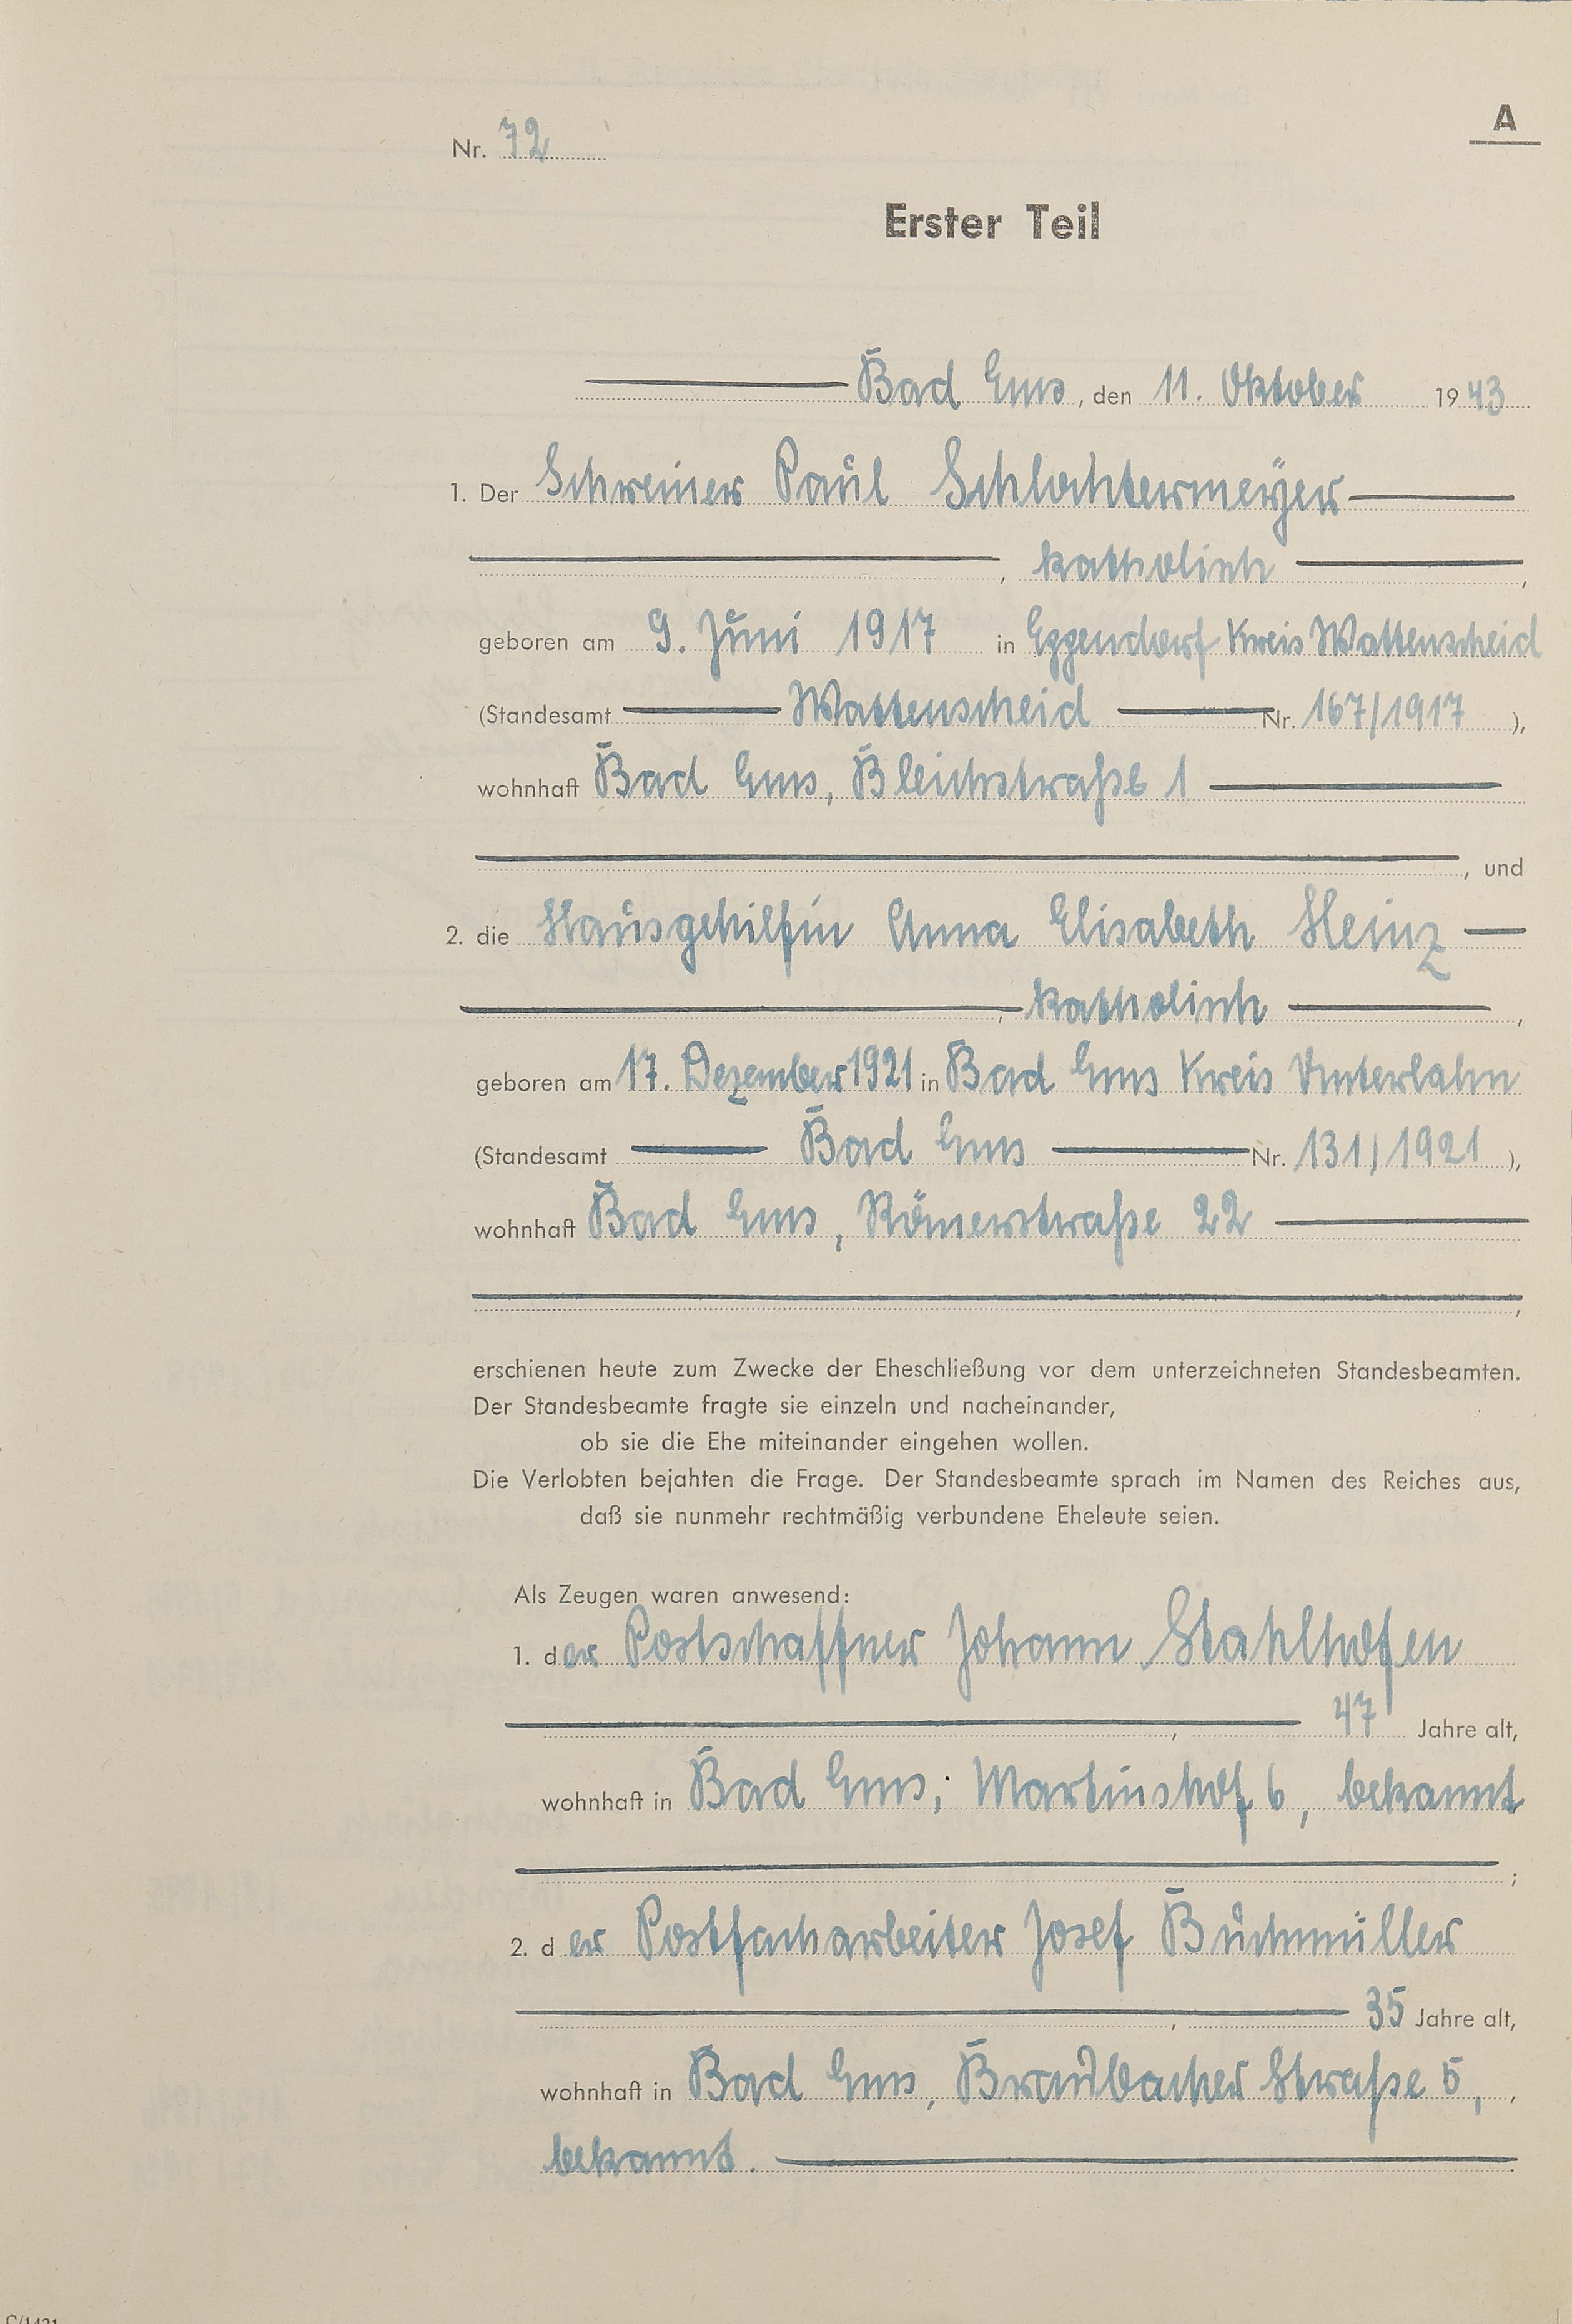 A
Nr. 72
Erster Teil
Bad Ems, den 11. Oktober 1943
1. Der Schreiner Paul Schlochtermeyer
, katholisch ,
geboren am 9. Juni 1917 in Eggendorf Kreis Wattenscheid
(Standesamt Wattenscheid Nr. 167/1917 ),
wohnhaft Bad Ems, Bleichstraße 1
, und
2. die Hausgehilfin Anna Elisabeth Heinz
, katholisch ,
geboren am 17. Dezember 1921 in Bad Ems Kreis Unterlahn
(Standesamt Bad Ems Nr. 131/1921 ),
wohnhaft Bad Ems, Römerstraße 22
,
erschienen heute zum Zwecke der Eheschließung vor dem unterzeichneten Standesbeamten.
Der Standesbeamte fragte sie einzeln und nacheinander,
ob sie die Ehe miteinander eingehen wollen.
Die Verlobten bejahten die Frage. Der Standesbeamte sprach im Namen des Reiches aus,
daß sie nunmehr rechtmäßig verbundene Eheleute seien.
Als Zeugen waren anwesend:
1. der Postschaffner Johann Stahlhofen
, 47 Jahre alt,
wohnhaft in Bad Ems, Martinshof 6, bekannt
;
2. der Postfacharbeiter Josef Buchmüller
, 35 Jahre alt,
wohnhaft in Bad Ems, Braubacher Straße 5, ,
bekannt. .